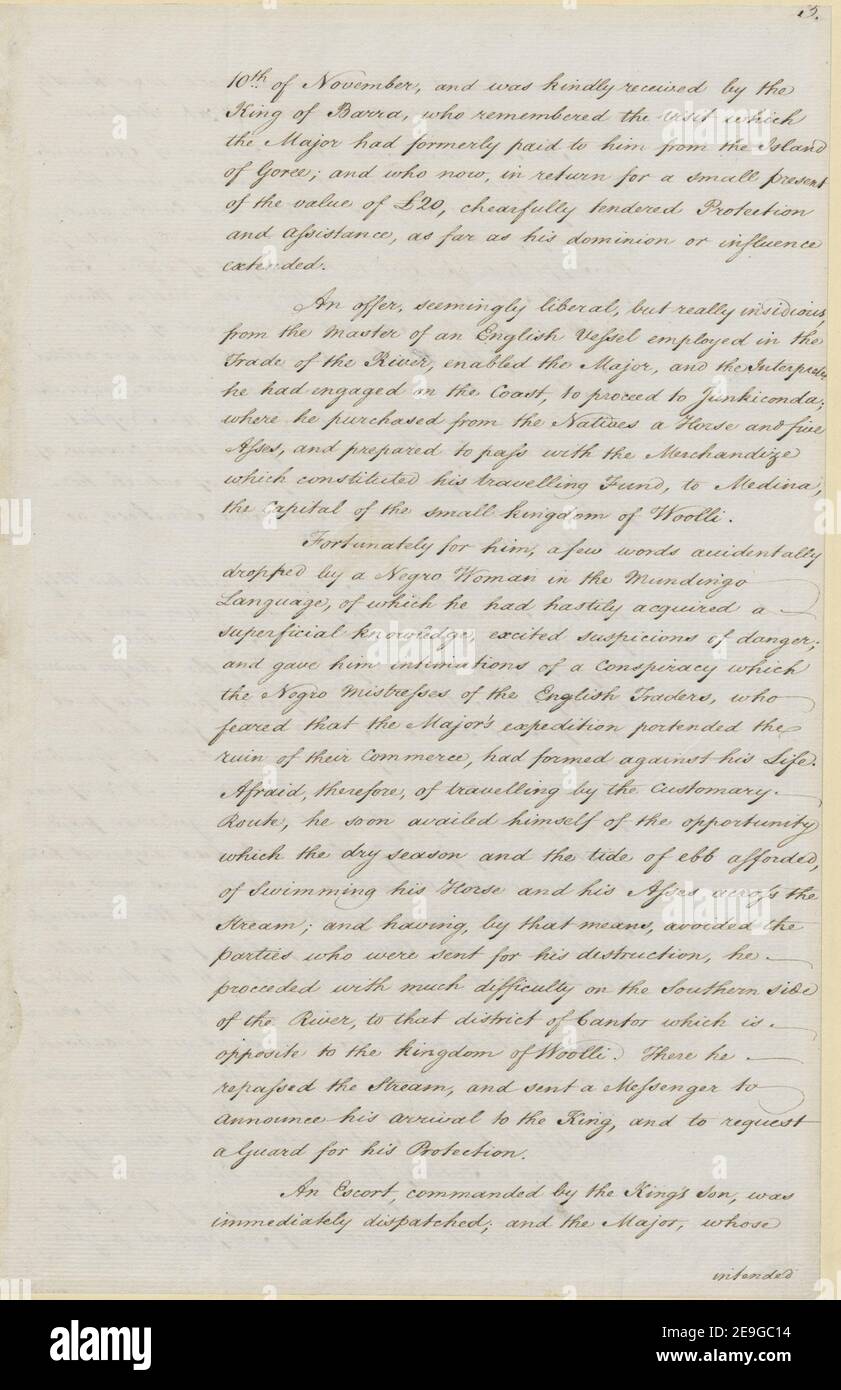 5.
10th. of November, and was kindly received by the
King of Barra, who remembered the visit which
the Major had formerly paid to him from the Island
of Goree; and who now, in return for a small present
of the value of £20, chearfully tendered Protection
and Assistance, as far as his dominion or influence
extended.
An offer, seemingly liberal, but really insidious,
from the master of an English Vessel employed in the
Trade of the River, enabled the Major, and the Interpreter
he had engaged on the Coast, to proceed to Junkiconda;
where he purchased from the Natives a Horse and five
Asses, and prepared to pass with the Merchandize
which constituted his travelling Fund, to Medina,
the Capital of the small kingdom of Woolli.
Fortunately for him, a few words accidentally
dropped by a Negro Woman in the Mundingo
Language, of which he had hastily acquired a
superficial knowledge, excited suspicions of danger;
and gave him intimations of a Conspiracy which
the Negro Mistresses of the English Traders, who
feared that the Major's expedition portended the
ruin of their Commerce, had formed against his Life.
Afraid, therefore, of travelling by the Customary
Route, he soon availed himself of the opportunity
which the dry season and the tide of ebb afforded,
of Swimming his Horse and his Asses across the
Stream; and having, by that means, avoided the
parties who were sent for his destruction, he
proceeded with much difficulty on the Southern side
of the River, to that district of Cantor which is
opposite to the kingdom of Woolli. There he
repassed the Stream, and sent a Messenger to
announce his arrival to the King, and to request
a Guard for his Protection.
An Escort, commanded by the King's Son, was
immediately dispatched; and the Major, whose
intended
alamy
Image ID: 2E9GC14
www.alamy.com